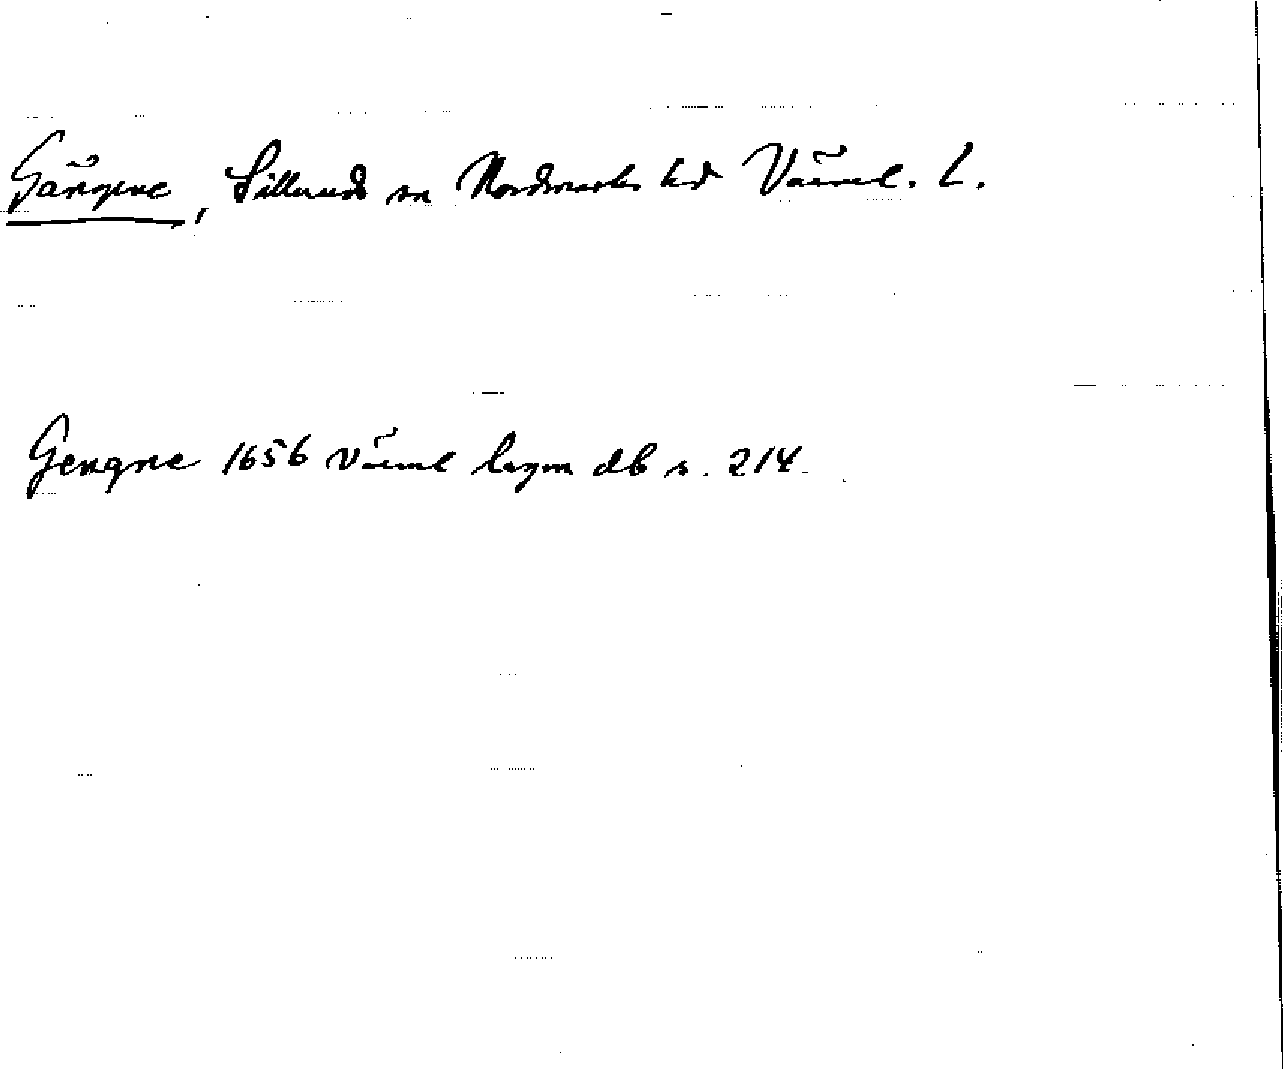 Gängene, Sillerud sn Nordmarks hd Värml. L.
Gengne 1656 Värml lagm db s. 214